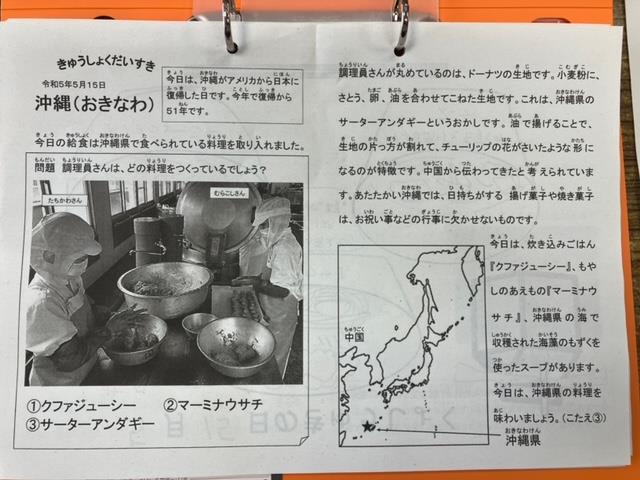 きゅうしょくだいすき
令和5年5月15日
沖縄(おきなわ)
今日は、沖縄がアメリカから日本に
復帰した日です。今年で復帰から
51年です。
今日の給食は沖縄県で食べられている料理を取り入れました。
問題 調理員さんは、どの料理をつくっているでしょう?
たちかわさん
むらこしさん
①クファジューシー ②マーミナウサチ
③サーターアンダギー
調理員さんが丸めているのは、ドーナツの生地です。小麦粉に、
さとう、卵、油を合わせてこねた生地です。これは、沖縄県の
サーターアンダギーというおかしです。油で揚げることで、
生地の片っ方が割れて、チューリップの花がさいたような形に
なるのが特徴です。中国から伝わってきたと考えられていま
す。あたたかい沖縄では、日持ちがする 揚げ菓子や焼き菓子
は、お祝い事などの行事に欠かせないものです。
今日は、炊き込みごはん
『クファジューシー』、もや
しのあえもの『マーミナウ
サチ』、沖縄県の海で
収穫された海藻のもずくを
使ったスープがあります。
今日は、沖縄県の料理を
味わいましょう。(こたえ③)
中国
沖縄県